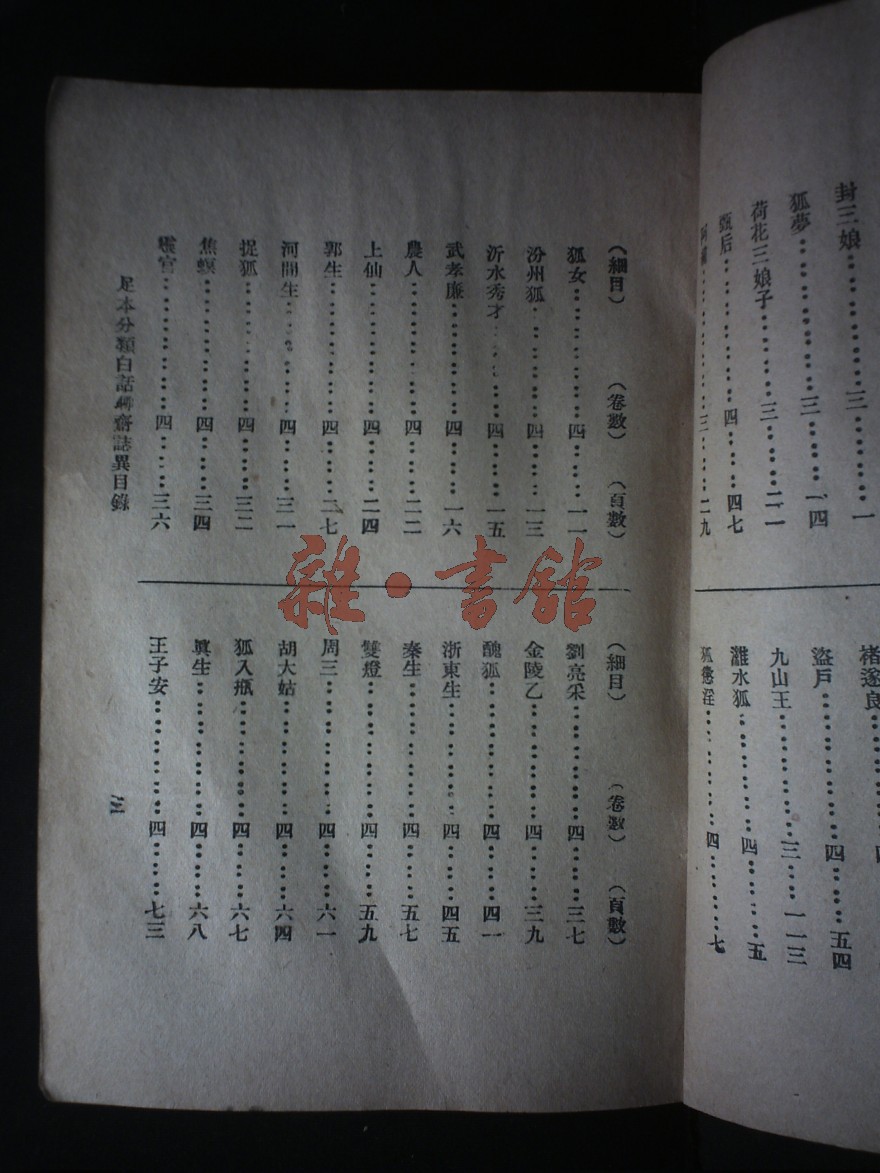 封三娘……三……一
狐夢……三……一四
荷花三娘子……三……二一
甄后……四……四七
三……二九
褚遂良
盜戶……四……五四
九山王……三……一一三
濰水狐……四……五
狐懲淫……四……七
(細目) (卷數) (頁數)
狐女……四……一一
汾州狐……四……一三
沂水秀才……四……一五
武孝廉……四……一六
農人……四……二二
上仙……四……二四
郭生……四……二七
河間生……四……三一
捉狐……四……三二
焦螟……四……三四
靈官……四……三六
(細目) (卷數) (頁數)
劉亮采……四……三七
金陵乙……四……三九
醜狐……四……四一
浙東生……四……四五
秦生……四……五七
雙燈……四……五九
周三……四……六一
胡大姑……四……六四
狐入瓶……四……六七
眞生……四……六八
王子安……四……七三
足本分類白話聊齋誌異目錄
雜·書館